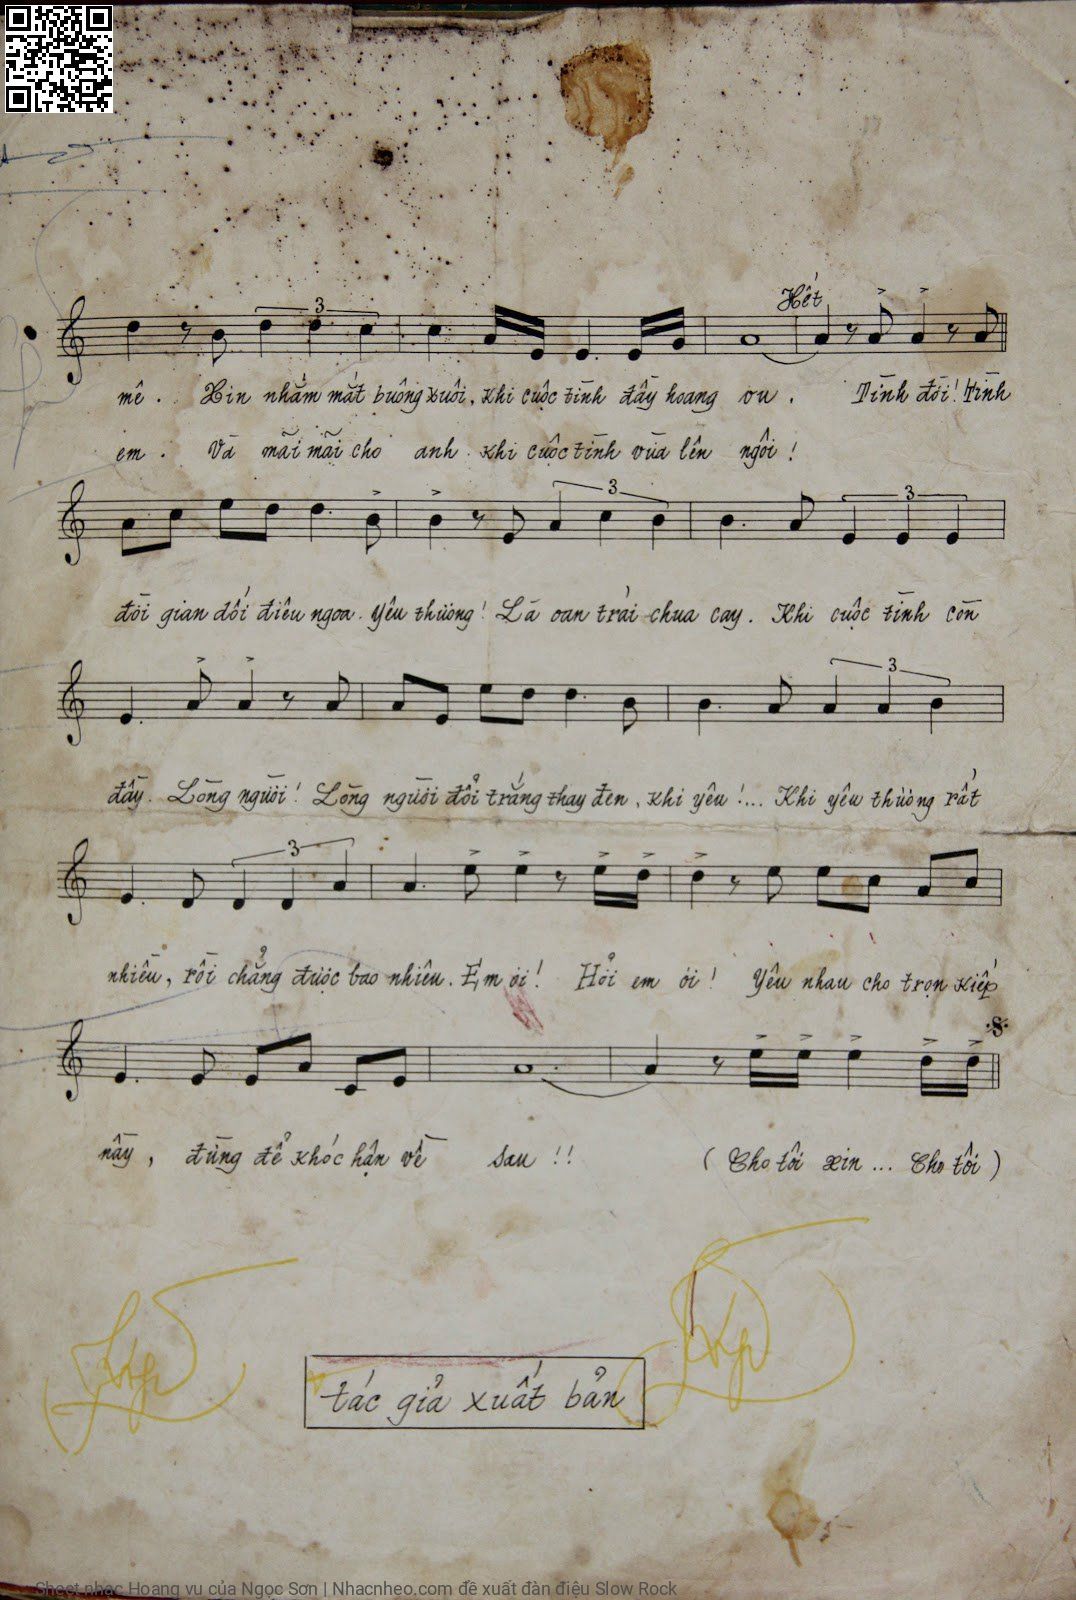 3
Hết
mê. Xin nhắm mắt buông xuôi, khi cuộc tình đầy hoang vu. Tình đời! Tình
em. Và mãi mãi cho anh khi cuộc tình vừa lên ngôi!
3 3
đời gian dối điêu ngoa. Yêu thương! Là oan trái chua cay. Khi cuộc tình còn
3
đầy. Lòng người! Lòng người đổi trắng thay đen, khi yêu!... Khi yêu thương rất
3
nhiều, rồi chẳng được bao nhiêu. Em ơi! Hỡi em ơi! Yêu nhau cho trọn kiếp
nầy, đừng để khóc hận về sau!! (Cho tôi xin... Cho tôi)
tác giả xuất bản
Sheet nhạc Hoang vu của Ngọc Sơn | Nhacnheo.com đề xuất đàn điệu Slow Rock